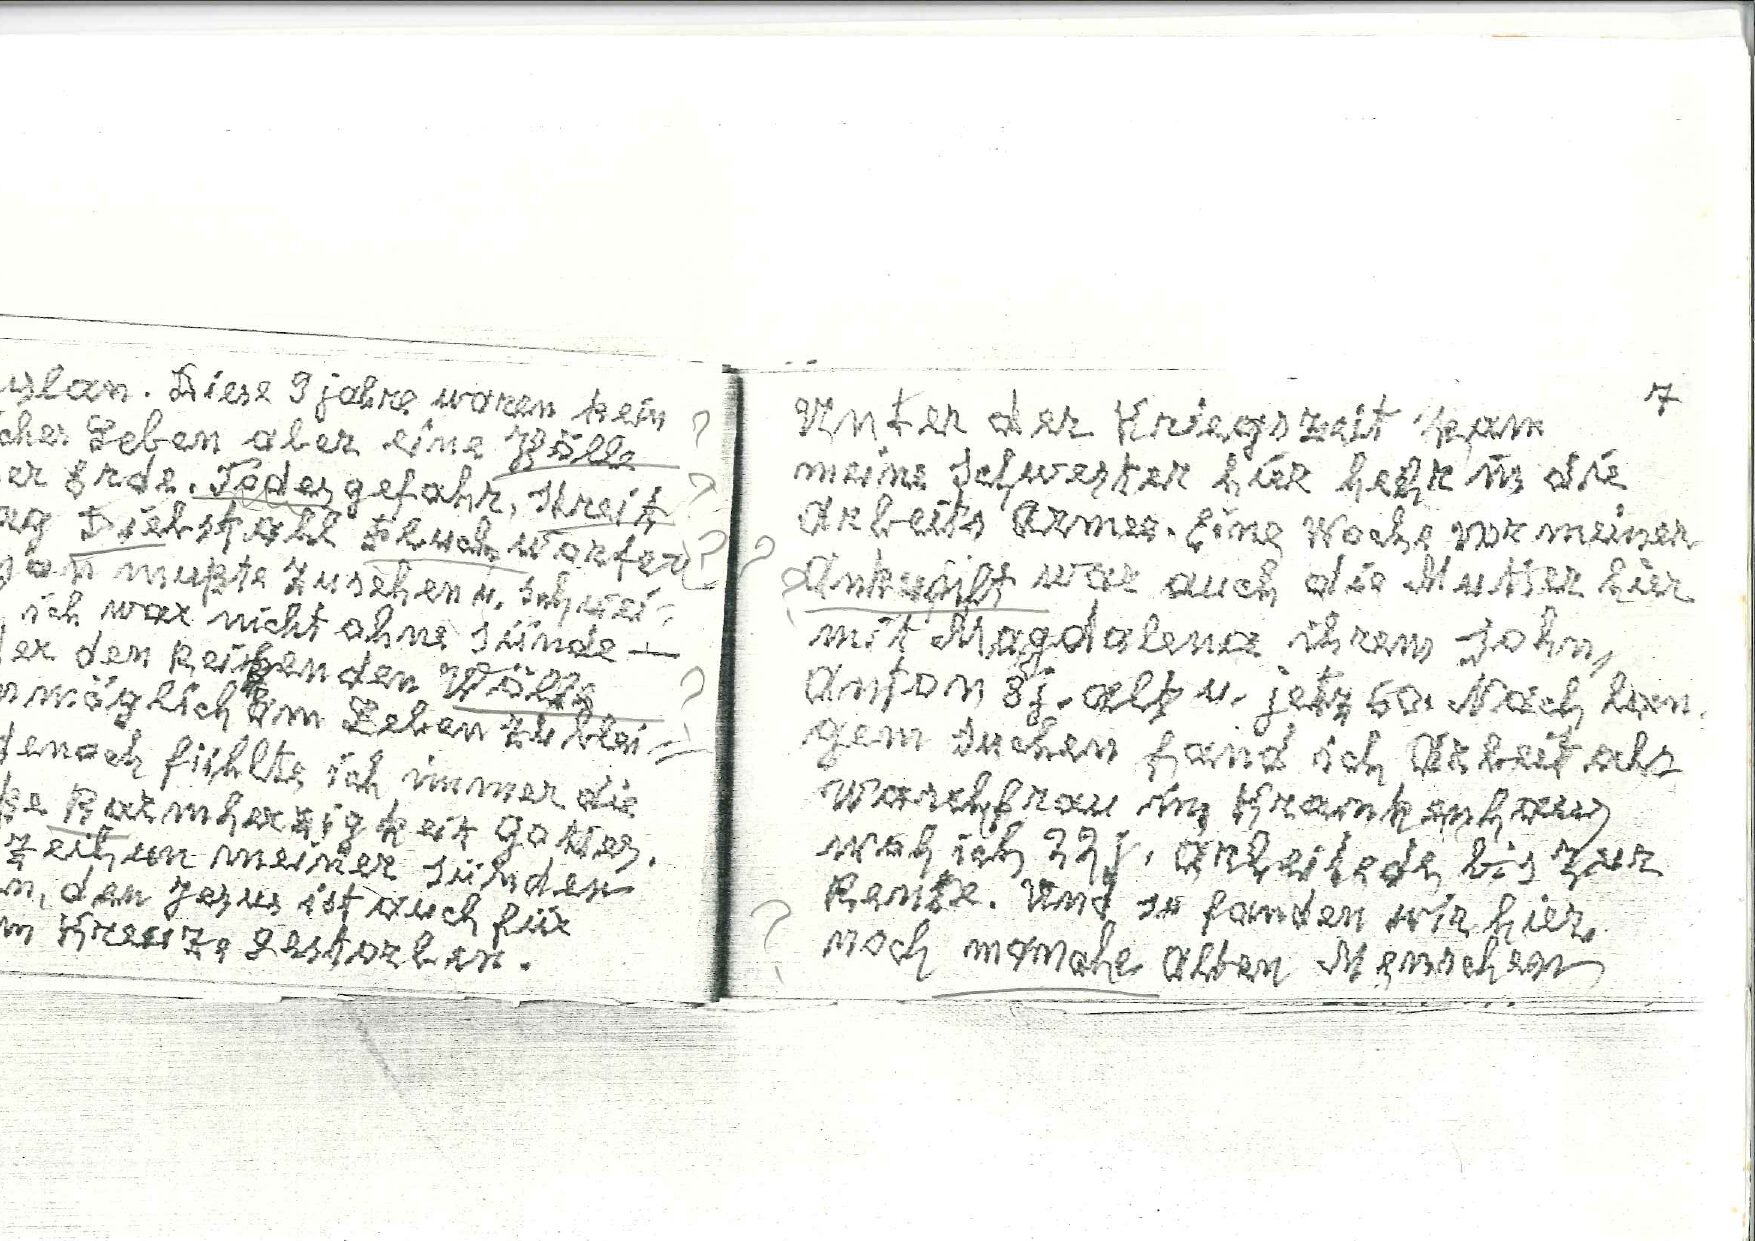 uslan. Diese 9 jahre waren kein
cher Leben aber eine Hölle
er Erde. Todesgefahr, Streit
ag Diebstahl Fluch worfer
gan mußte zusehen u. schwei-
ich war nicht ohne Sünde –
er den Reißenden Wölfe
nmöglich am Leben zu blei=
denoch fühlte ich immer die
ke Barmherzigkeit Gottes.
zeihun meiner Sünden
n, den Jesus ist auch für
m Kreuze Gestorben.
7
Unter der Kriegszeit kam
meine Schwester hier hehr in die
Arbeits Armee. Eine Woche vor meiner
Ankunft war auch die Mutter hier
mit Magdalena ihrem Sohn,
Anton 8j. alt u. jetz 60. Nach lan
gem suchen fand ich Arbeit als
Waschfrau im Krankenhaus
woh ich 22j. Arbeitede bis zur
Rente. Und so fanden wir hier
noch manche alten Menschen